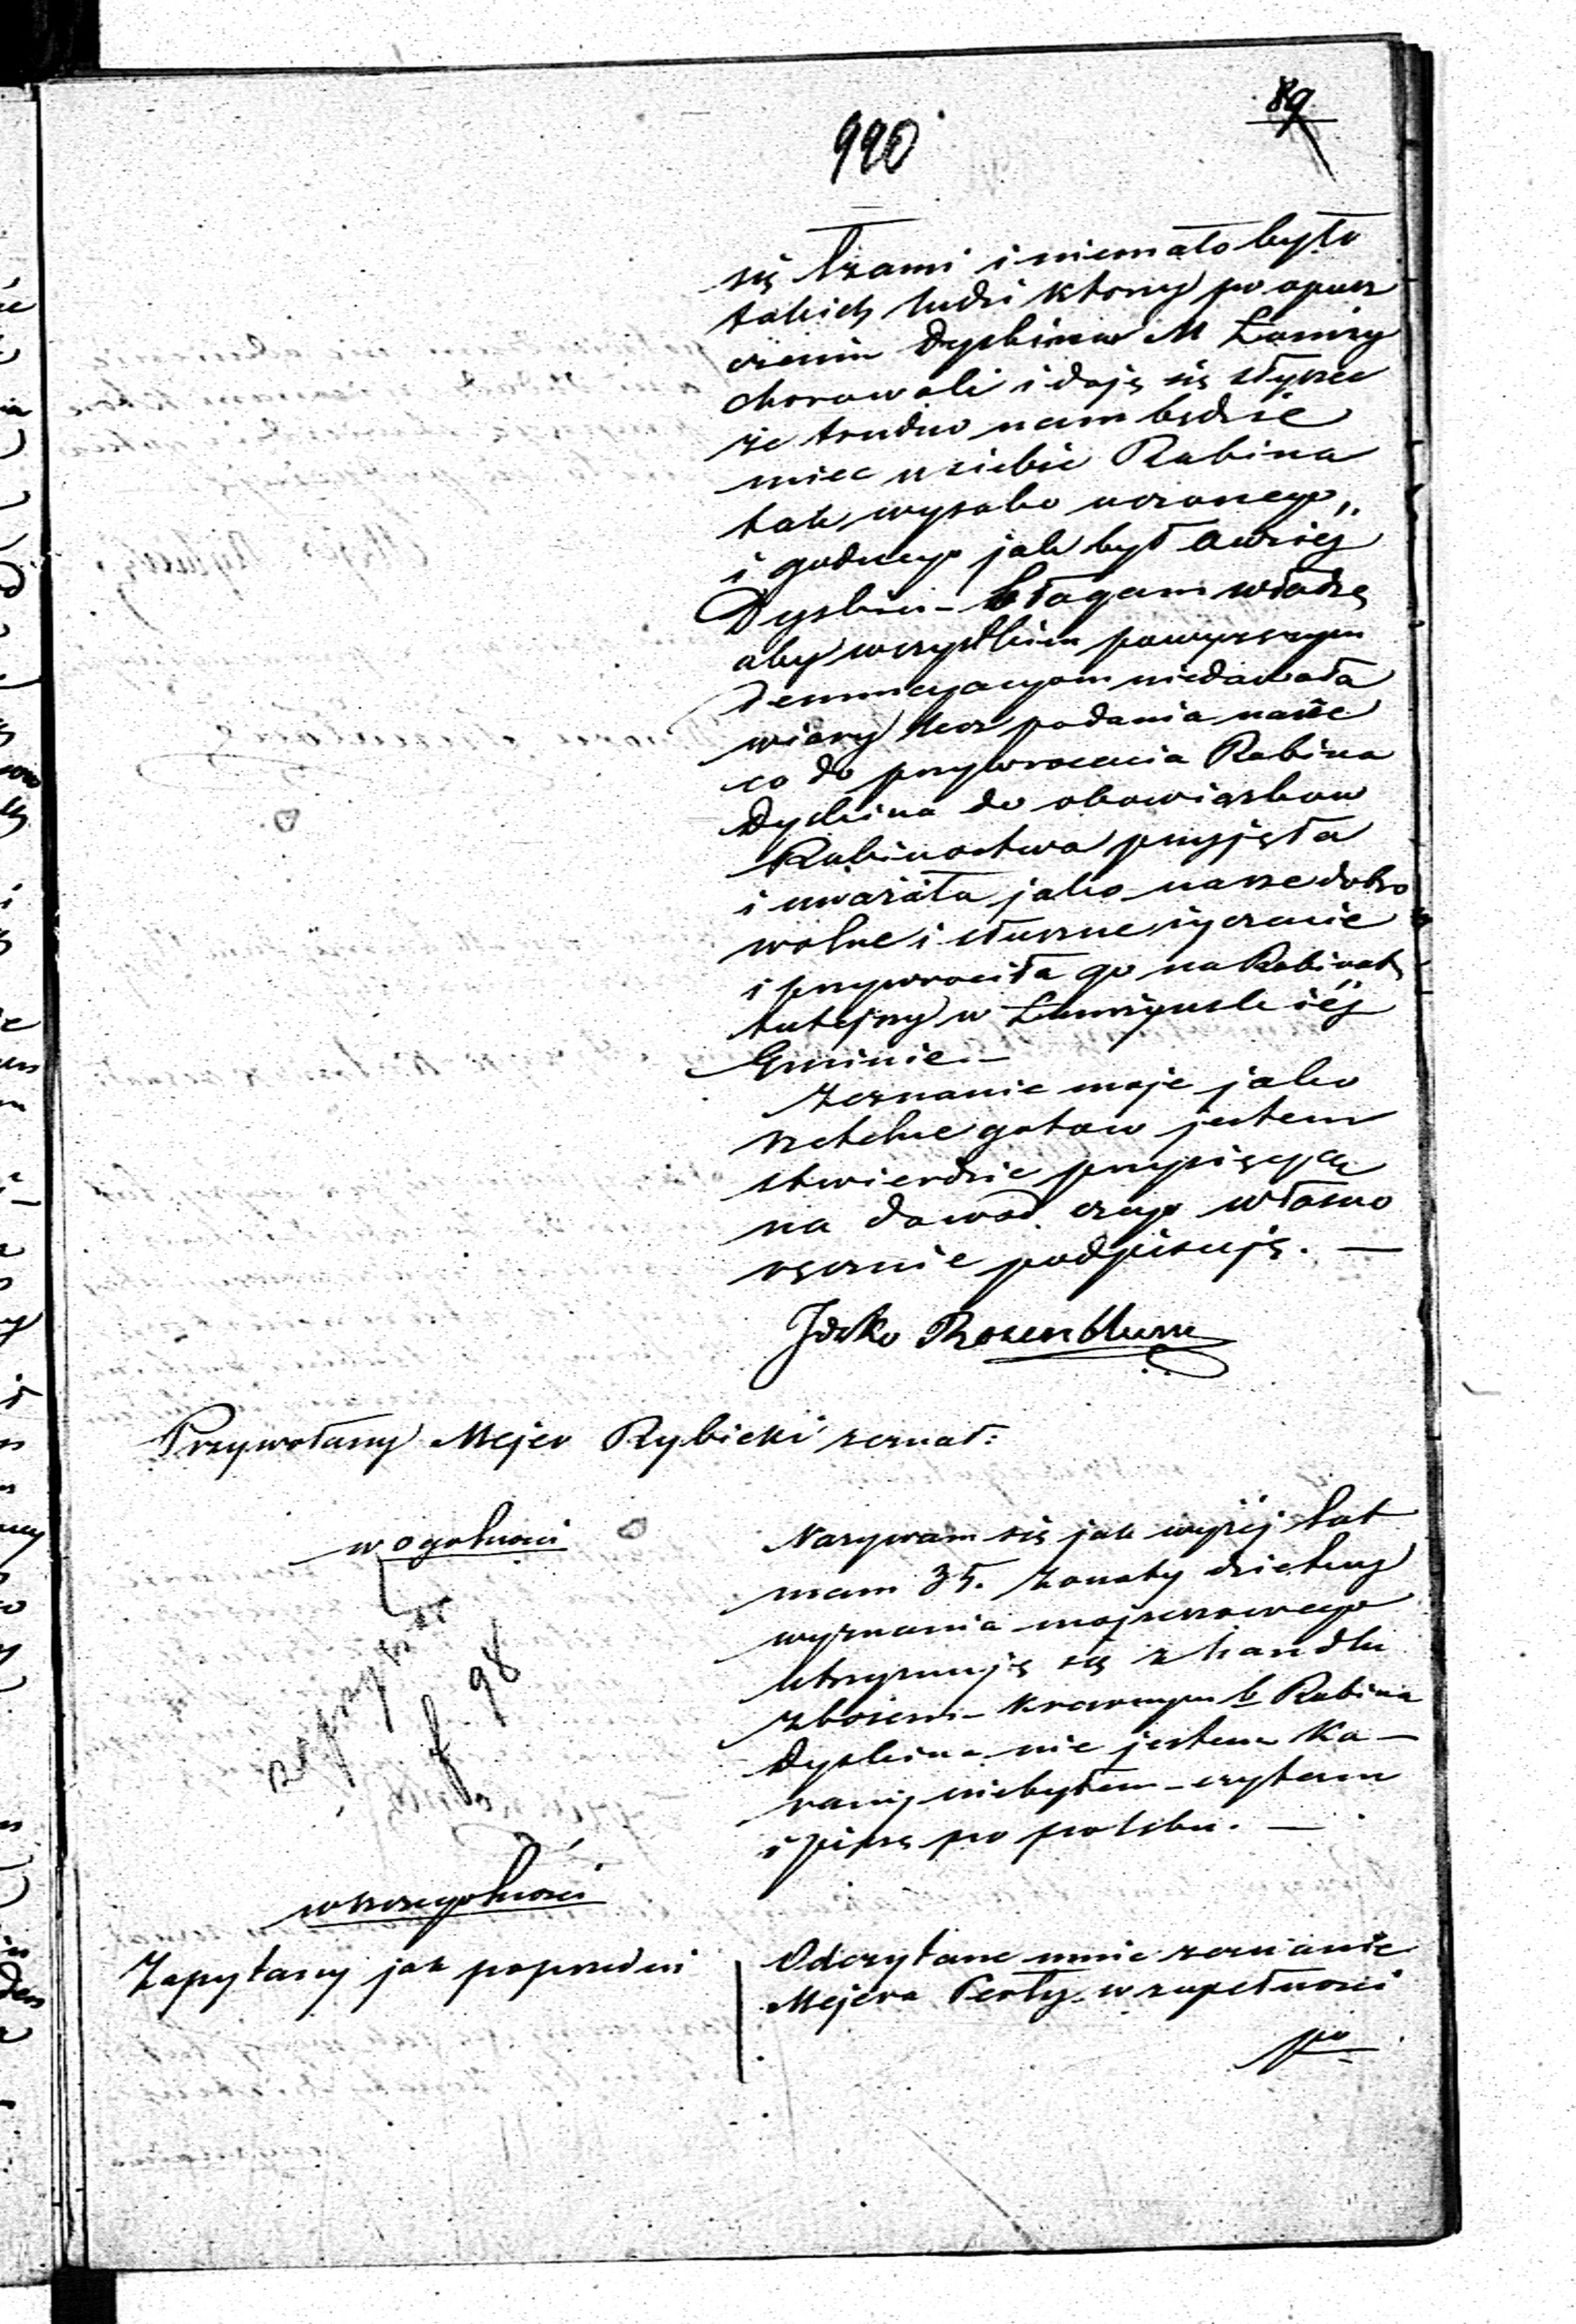 990
89
się łzami i niemało było
takich ludzi ktorzy po opusz
czeniu Dyskina M Łomży
chorowali i daję się słyszec
że trudno nam będzie
miec u siebie Rabina
tak wysoko uczonego,,
i godnego jak był
Dyskin – błagam władzę
aby wszystkim powyższym
denuncyacyom niedawała
wiary lecz podania nasze
co do przywrocenia Rabina
Dyskina do obowiązkow
Rabinostwa przyjęła
i uważała jako nasze dobro
wolne i słuszne życzenie
i przywrociła go na Rabinat
tutejszy w Łomżyńskiéj
Gminie. –
Zeznanie moje jako
rzetelne gotow jestem
stwierdzic przysięgą
na dowod czego własno
ręcznie podpisuję. —
Icko Rosenblum
Przywołany Mejer Rybicki zeznał:
w ogolnosci
Nazywam się jak wyżéj lat
mam 35. żonaty dzietny
wyznania mojżeszowego
utrzymuję się z handlu
zbożem – krewnym b Rabina
Dyskina nie jestem Ka –
rany niebyłem – czytam
i piszę po polsku. —
f 98
w szczegolnosci
Zapytany jak poprzedni
Odczytane mnie zeznanie
Mejera Perły w zupełnosci
po